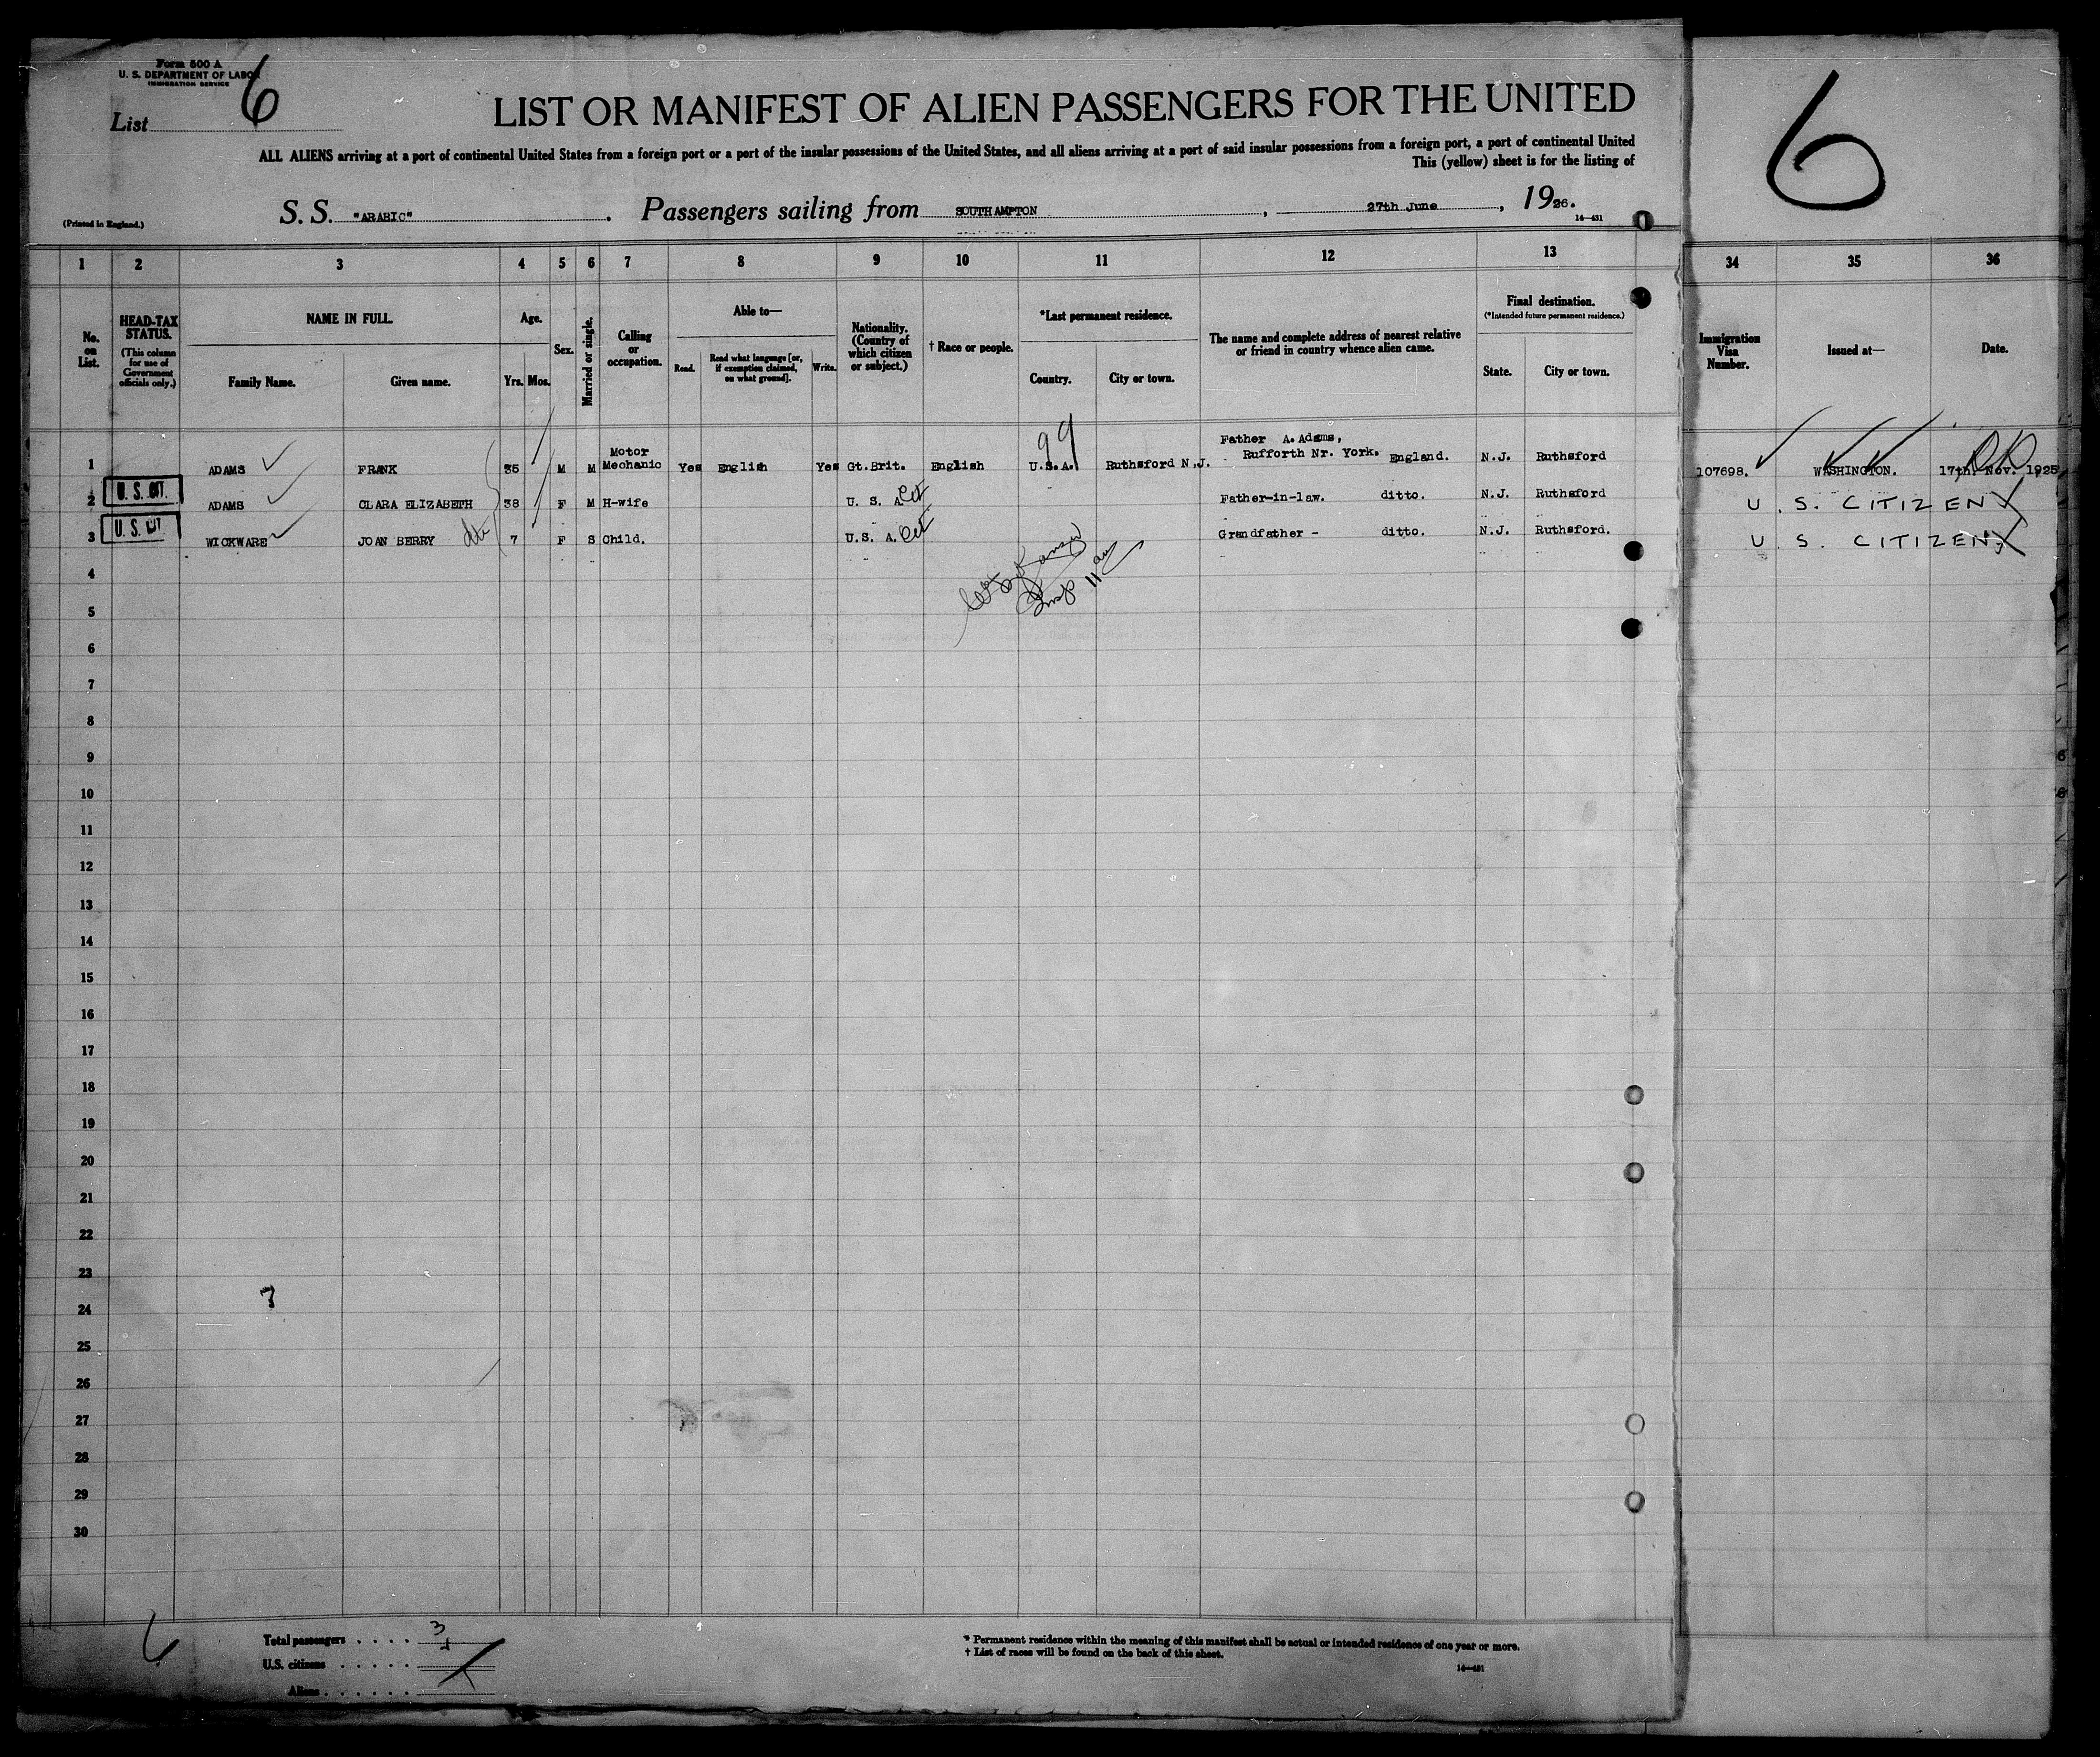 Form 500 A
U. S. DEPARTMENT OF LABOR
IMMIGRATION SERVICE
List 6
LIST OR MANIFEST OF ALIEN PASSENGERS FOR THE UNITED
6
ALL ALIENS arriving at a port of continental United States from a foreign port or a port of the insular possessions of the United States, and all aliens arriving at a port of said insular possessions from a foreign port, a port of continental United
This (yellow) sheet is for the listing of
(Printed in England.)
S. S. "ARABIC" . Passengers sailing from SOUTHAMPTON , 27th June , 1926.
14—431
1 2 3 4 5 6 7 8 9 10 11 12 13 34 35 36
No. on List.
HEAD-TAX STATUS.
(This column for use of Government officials only.)
NAME IN FULL.
Family Name. Given name.
Age.
Yrs. Mos.
Sex.
Married or single.
Calling or occupation.
Able to—
Read. Read what language [or, if exemption claimed, on what ground]. Write.
Nationality. (Country of which citizen or subject.)
† Race or people.
*Last permanent residence.
Country. City or town.
The name and complete address of nearest relative or friend in country whence alien came.
Final destination.
(*Intended future permanent residence.)
State. City or town.
Immigration Visa Number.
Issued at—
Date.
99
1 ADAMS FRANK 35 M M Motor Mechanic Yes English Yes Gt.Brit. English U.S.A. Ruthsford N.J. Father A. Adams, Rufforth Nr. York. England. N.J. Ruthsford 107698. WASHINGTON. 17th. Nov. 1925
2 U. S. CIT. ADAMS CLARA ELIZABETH 38 F M H-wife U. S. A. Cit Father-in-law. ditto. N.J. Ruthsford U. S. CITIZEN
3 U. S. CIT WICKWARE JOAN BERRY 7 F S Child. U.S. A. Cit Grandfather - ditto. N.J. Ruthsford. U. S. CITIZEN
4
5
6
7
8
9
10
11
12
13
14
15
16
17
18
19
20
21
22
23
24
25
26
27
28
29
30
Total passengers . . . . 3
U.S. citizens . . . . .
Aliens . . . . . .
* Permanent residence within the meaning of this manifest shall be actual or intended residence of one year or more.
† List of races will be found on the back of this sheet.
14—431